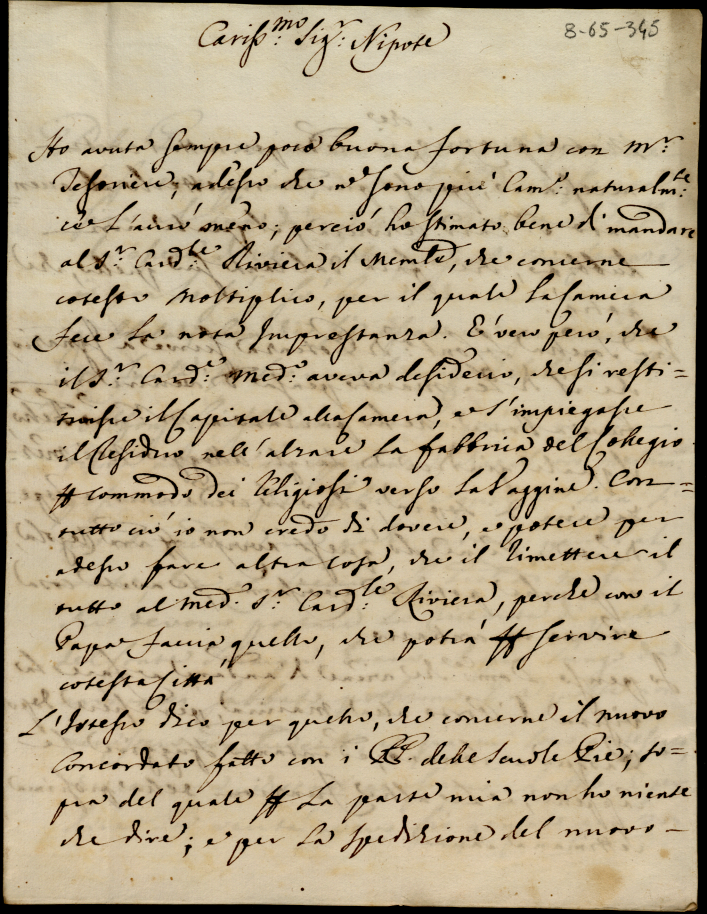 8-65-345
Cariss.mo Sig.r Nipote
Ho avuta sempre poco buona fortuna con M.r
Tesoriere; adesso che no sono più Cam.o naturalm.te
ce l'avrò meno; perciò ho stimato bene di mandare
al S.r Card.le Riviera il Mem.le, che concerne
cotesto Moltiplico, per il quale la Camera
fece la nota Imprestanza. E' vero però, che
il S.r Card.e med.o aveva desiderio, che si resti=
tuisse il Capitale alla Camera, e s'impiegasse
il Residuo nell'alzare la fabbrica del Collegio
per commodo dei Religiosi verso la Vaggine. Con=
tutto ciò io non credo di dovere, e potere per
adesso fare altra cosa, che il rimettere il
tutto al med.o S.r Card.le Riviera, perche con il
Papa faccia quello, che potrà per servire
cotesta Città
L'istesso dico per quello, che concerne il nuovo
Concordato fatto con i PP. delle Scuole Pie; so=
pra del quale per la parte mia non ho niente
che dire; e per la spedizione del nuovo